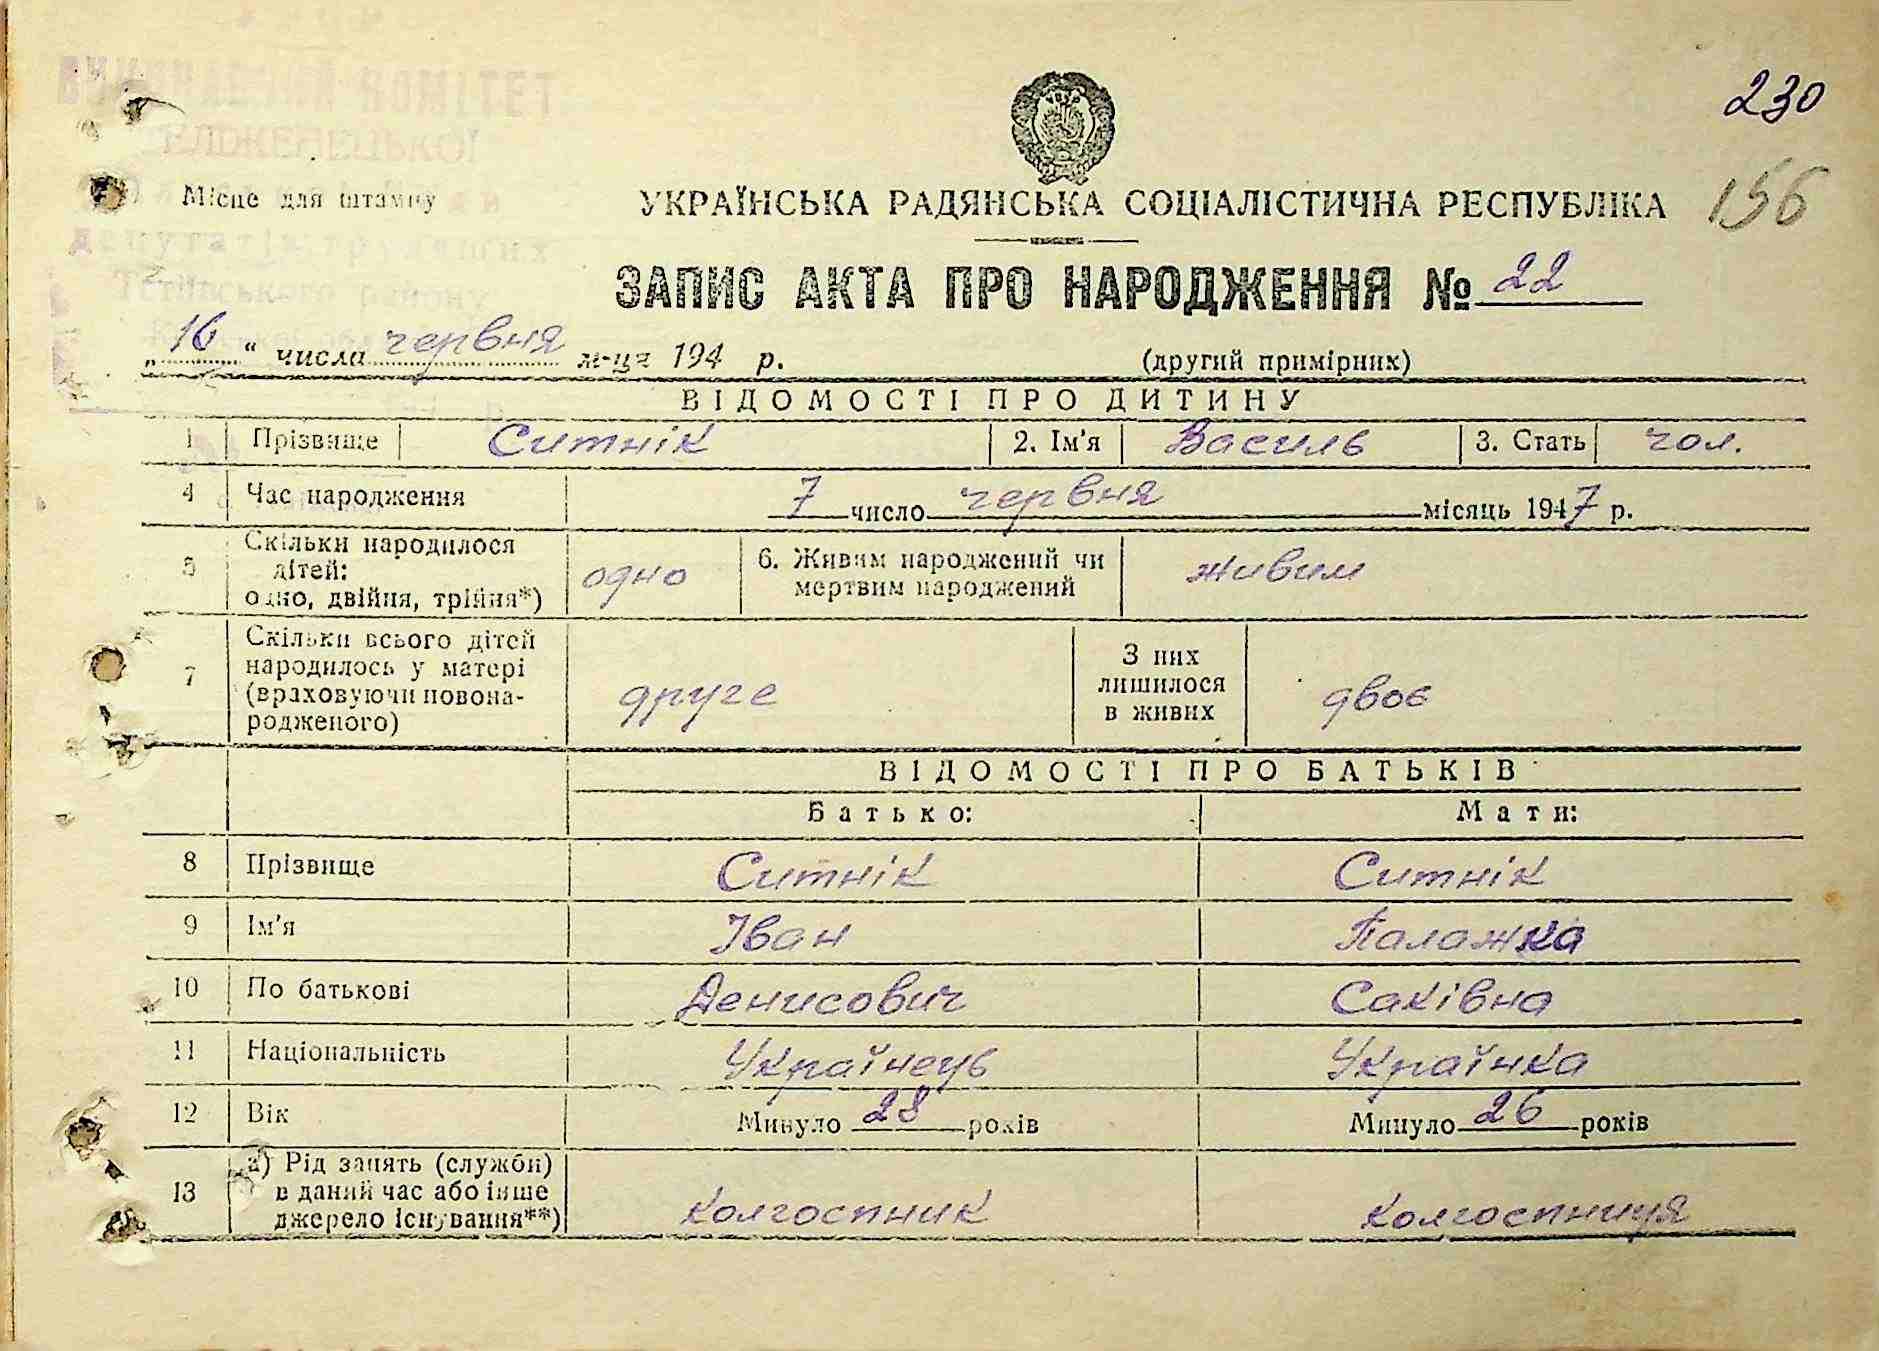 230
ВИКОНАВЧИЙ КОМІТЕТ
Місце для штампу
депутатів трудящих
Тетіївського району
УКРАЇНСЬКА РАДЯНСЬКА СОЦІАЛІСТИЧНА РЕСПУБЛІКА 156
ЗАПИС АКТА ПРО НАРОДЖЕННЯ № 22
„16“ числа червня м-ця 194 р. (другий примірник)
ВІДОМОСТІ ПРО ДИТИНУ
1 Прізвище Ситнік 2. Ім'я Василь 3. Стать чол.
4 Час народження 7 число червня місяць 1947 р.
5 Скільки народилося
дітей:
одно, двійня, трійня*) одно 6. Живим народжений чи
мертвим народжений живим
7 Скільки всього дітей
народилось у матері
(враховуючи новона-
родженого) друге З них
лишилося
в живих двоє
ВІДОМОСТІ ПРО БАТЬКІВ
Батько: Мати:
8 Прізвище Ситнік Ситнік
9 Ім'я Іван Палажка
10 По батькові Денисович Саківна
11 Національність Українець Українка
12 Вік Минуло 28 років Минуло 26 років
13 а) Рід занять (служби)
в даний час або інше
джерело існування**) колгоспник колгоспниця